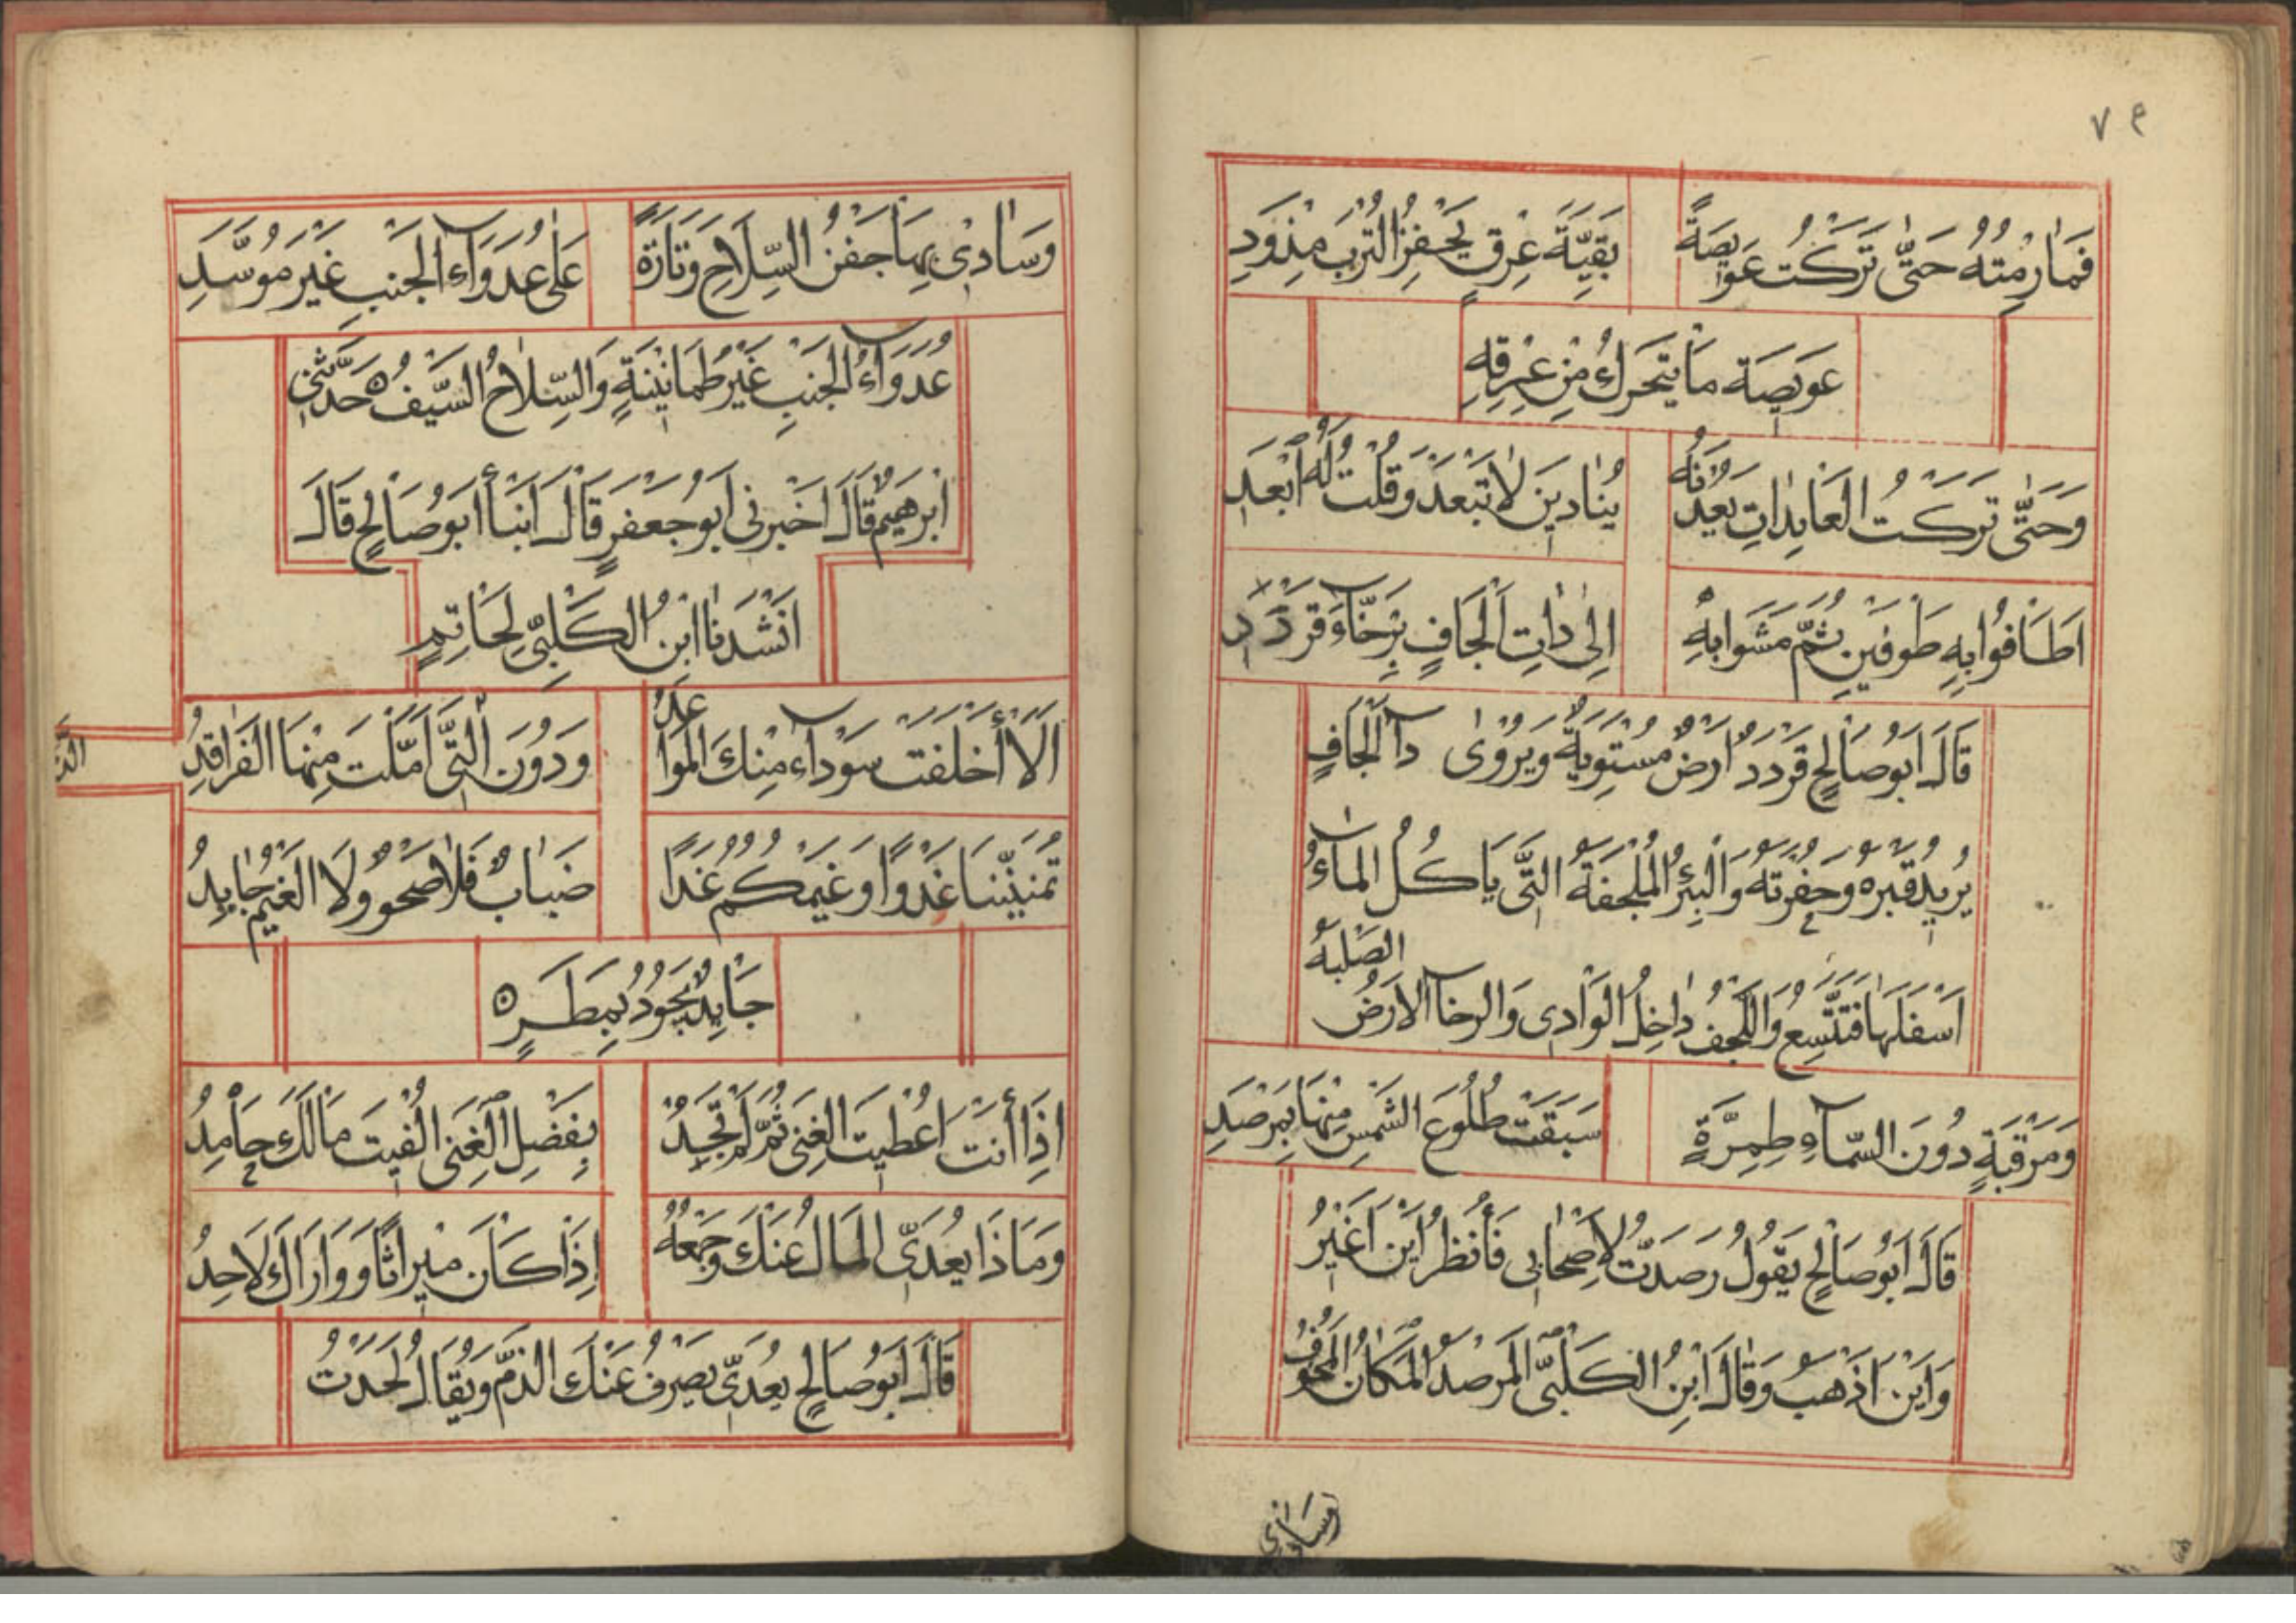 ٧٩
فَمَا رِمْتُهُ حَتَّى تَرَكْتُ عَوِيصَةً بَقِيَّةَ عِرْقٍ يَحْفِزُ التُّرْبَ مِذْوَدِ
عَوِيصَة مَا يَتَحَرَّكُ مِنْ عِرْقِهِ
وَحَتَّى تَرَكْتُ الْعَايِدَاتِ يَعُدْنَهُ يُنَادِينَ لَا تَبْعَدْ وَقُلْتُ لَهُ ابْعَدِ
اَطَافُوا بِهِ طَوْفَيْنِ ثُمَّ مَشَوْا بِهِ اِلَى ذَاتِ اَلْجَافٍ بِرَخَّاءَ قَرْدَدِ
قَالَ اَبُو صَالِحٍ قَرْدَدٌ اَرْضٌ مُسْتَوِيَةٌ وَيُرْوَى دَا اَلْجَافٍ
يُرِيدُ قَبْرَهُ وَحُفْرَتَهُ وَالْبِئْرُ الْمُلْجَفَةُ الَّتِي يَاكُلُ الْمَاءُ
اَسْفَلَهَا فَتَتَّسِعُ وَاللَّجَفُ دَاخِلُ الْوَادِي وَالرخا الْاَرْضُ
الصُّلْبَةُ
وَمَرْقَبَةٍ دُونَ السَّمَاءِ طِمِرَّةٍ سَبَقْتُ طُلُوعَ الشَّمْسِ مِنْهَا بِمَرْصَدِ
قَالَ اَبُو صَالِحٍ يَقُولُ رَصَدْتُ لِاَصْحَابِي فَاَنْظُرُ اَيْنَ اُغِيْرُ
وَاَيْنَ اَذْهَبُ وَقَالَ ابْنُ الْكَلْبِيِّ الْمَرْصَدُ الْمَكَانُ الْمَخُوفُ
وَسَادِي
وَسَادِي بِهَا جَفْنُ السِّلَاحِ وَتَارَةً عَلَى عُدَوَاءِ الْجَنْبِ غَيْرَ مُوَسَّدِ
عُدَوَاءُ الْجَنْبِ غَيْرُ طُمَانِيْنَةٍ وَالسِّلَاحُ السَّيْفُ ه حَدَّثَنِي
اِبْرَهِيمُ قَالَ اَخْبَرَنِي اَبُو جَعْفَرٍ قَالَ اَنْبَأَ اَبُو صَالِحٍ قَالَ
اَنْشَدَنَا ابْنُ الْكَلْبِيِّ لِحَاتِمٍ
اَلَا أَخْلَفَتْ سَوْدَاءُ مِنْكَ الْمَوَاعِدُ وَدُونَ الَّتِي اَمَّلْتَ مِنْهَا الْفَرَاقِدُ
تُمَنِّيْنَنَا غَدْوًا وَغَيْمُكُمُ غَدًا ضَبَابٌ فَلَا صَحْوٌ وَلَا الْغَيْمُ جَايِدُ
جَايِدٌ يَجُودُ بِمَطَرٍ ه
اِذَا أَنْتَ اُعْطِيتَ الْغِنَى ثُمَّ لَمْ تَجُدْ بِفَضْلِ الْغِنَى اُلْفِيتَ مَا لَكَ حَامِدُ
وَمَاذَا يُعَدِّي الْمَالُ عَنْكَ وَجَمْعُهُ اِذَا كَانَ مِيرَاثًا وَوَارَاكَ لَاحِدُ
قَالَ اَبُو صَالِحٍ يُعَدِّي يَصْرِفُ عَنْكَ الذَّمَّ وَيُقَالُ لَحَدْتُ